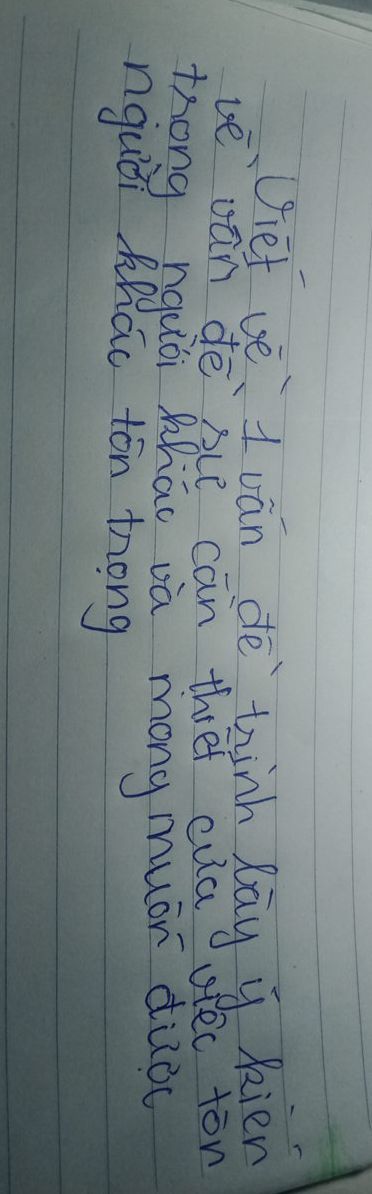 Viết về 1 vấn đề trình bày ý kiến
về vấn đề sự cần thiết của việc tôn
trong người khác và mong muốn được
người khác tôn trọng